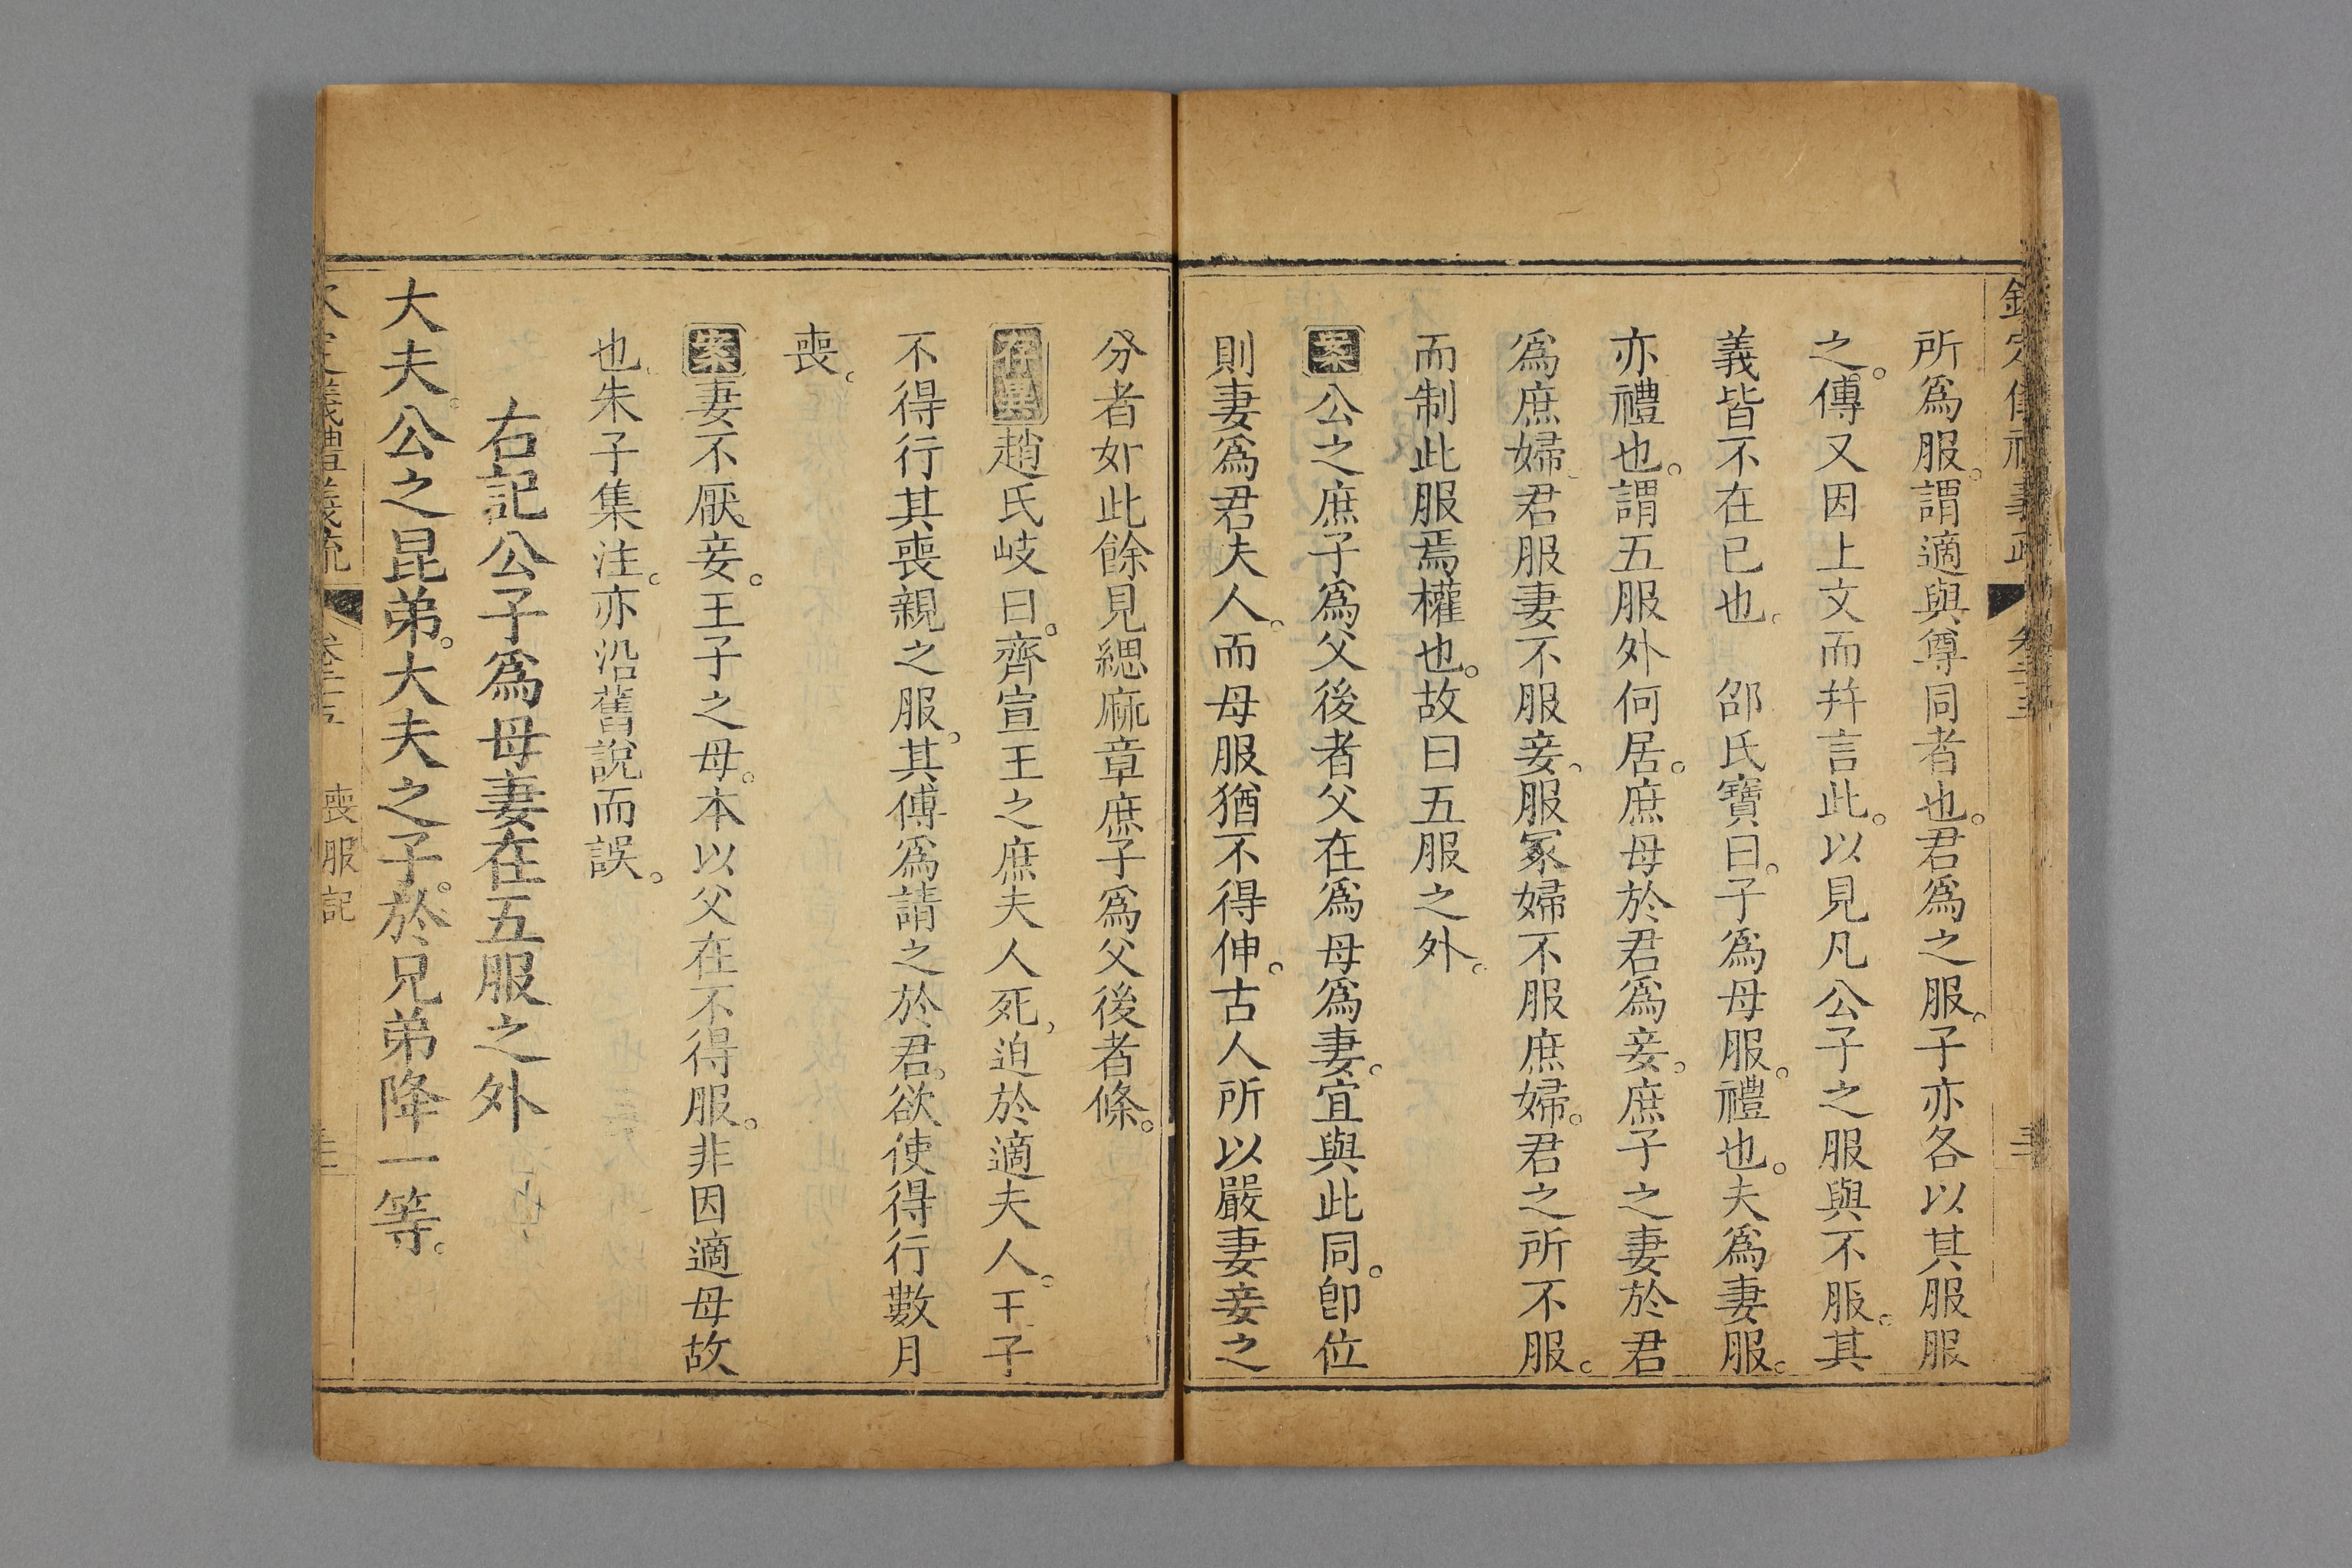 所爲服。謂適與尊同者也。君爲之服。子亦各以其服服
之。傳又因上文而幷言此。以見凡公子之服與不服。其
義皆不在已也。　邵氏寶曰。子爲母服。禮也。夫爲妻服。
亦禮也。謂五服外何居。庶母於君爲妾。庶子之妻於君
爲庶婦、君服妻不服妾、服冢婦不服庶婦。君之所不服。
而制此服焉權也。故曰五服之外。
案公之庶子爲父後者父在爲母爲妻。宜與此同。卽位
則妻爲君夫人。而母服猶不得伸。古人所以嚴妻妾之
分者如此餘見緦麻章庶子爲父後者條。
存異趙氏岐曰。齊宣王之庶夫人死，迫於適夫人。王子
不得行其喪親之服，其傅爲請之於君。欲使得行數月
喪。
案妻不厭妾。王子之母。本以父在不得服。非因適母故
也。朱子集注。亦沿舊說而誤。
右記公子爲母妻在五服之外
大夫。公之昆弟。大夫之子。於兄弟降一等。
喪服記